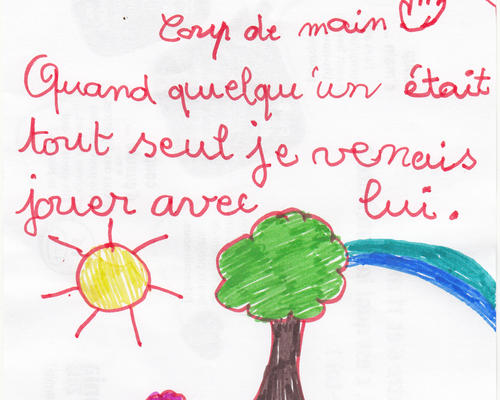 Coup de main
Quand quelqu'un était
tout seul je venais
jouer avec lui.